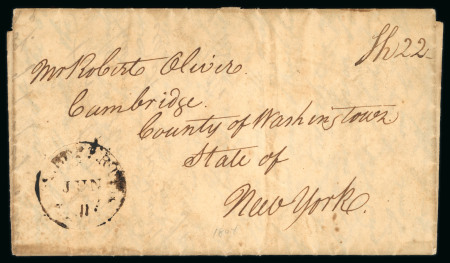 Sh 22
Mr Robert Oliver.
Cambridge.
County of Washingtown
State of
New York.
JUN
11